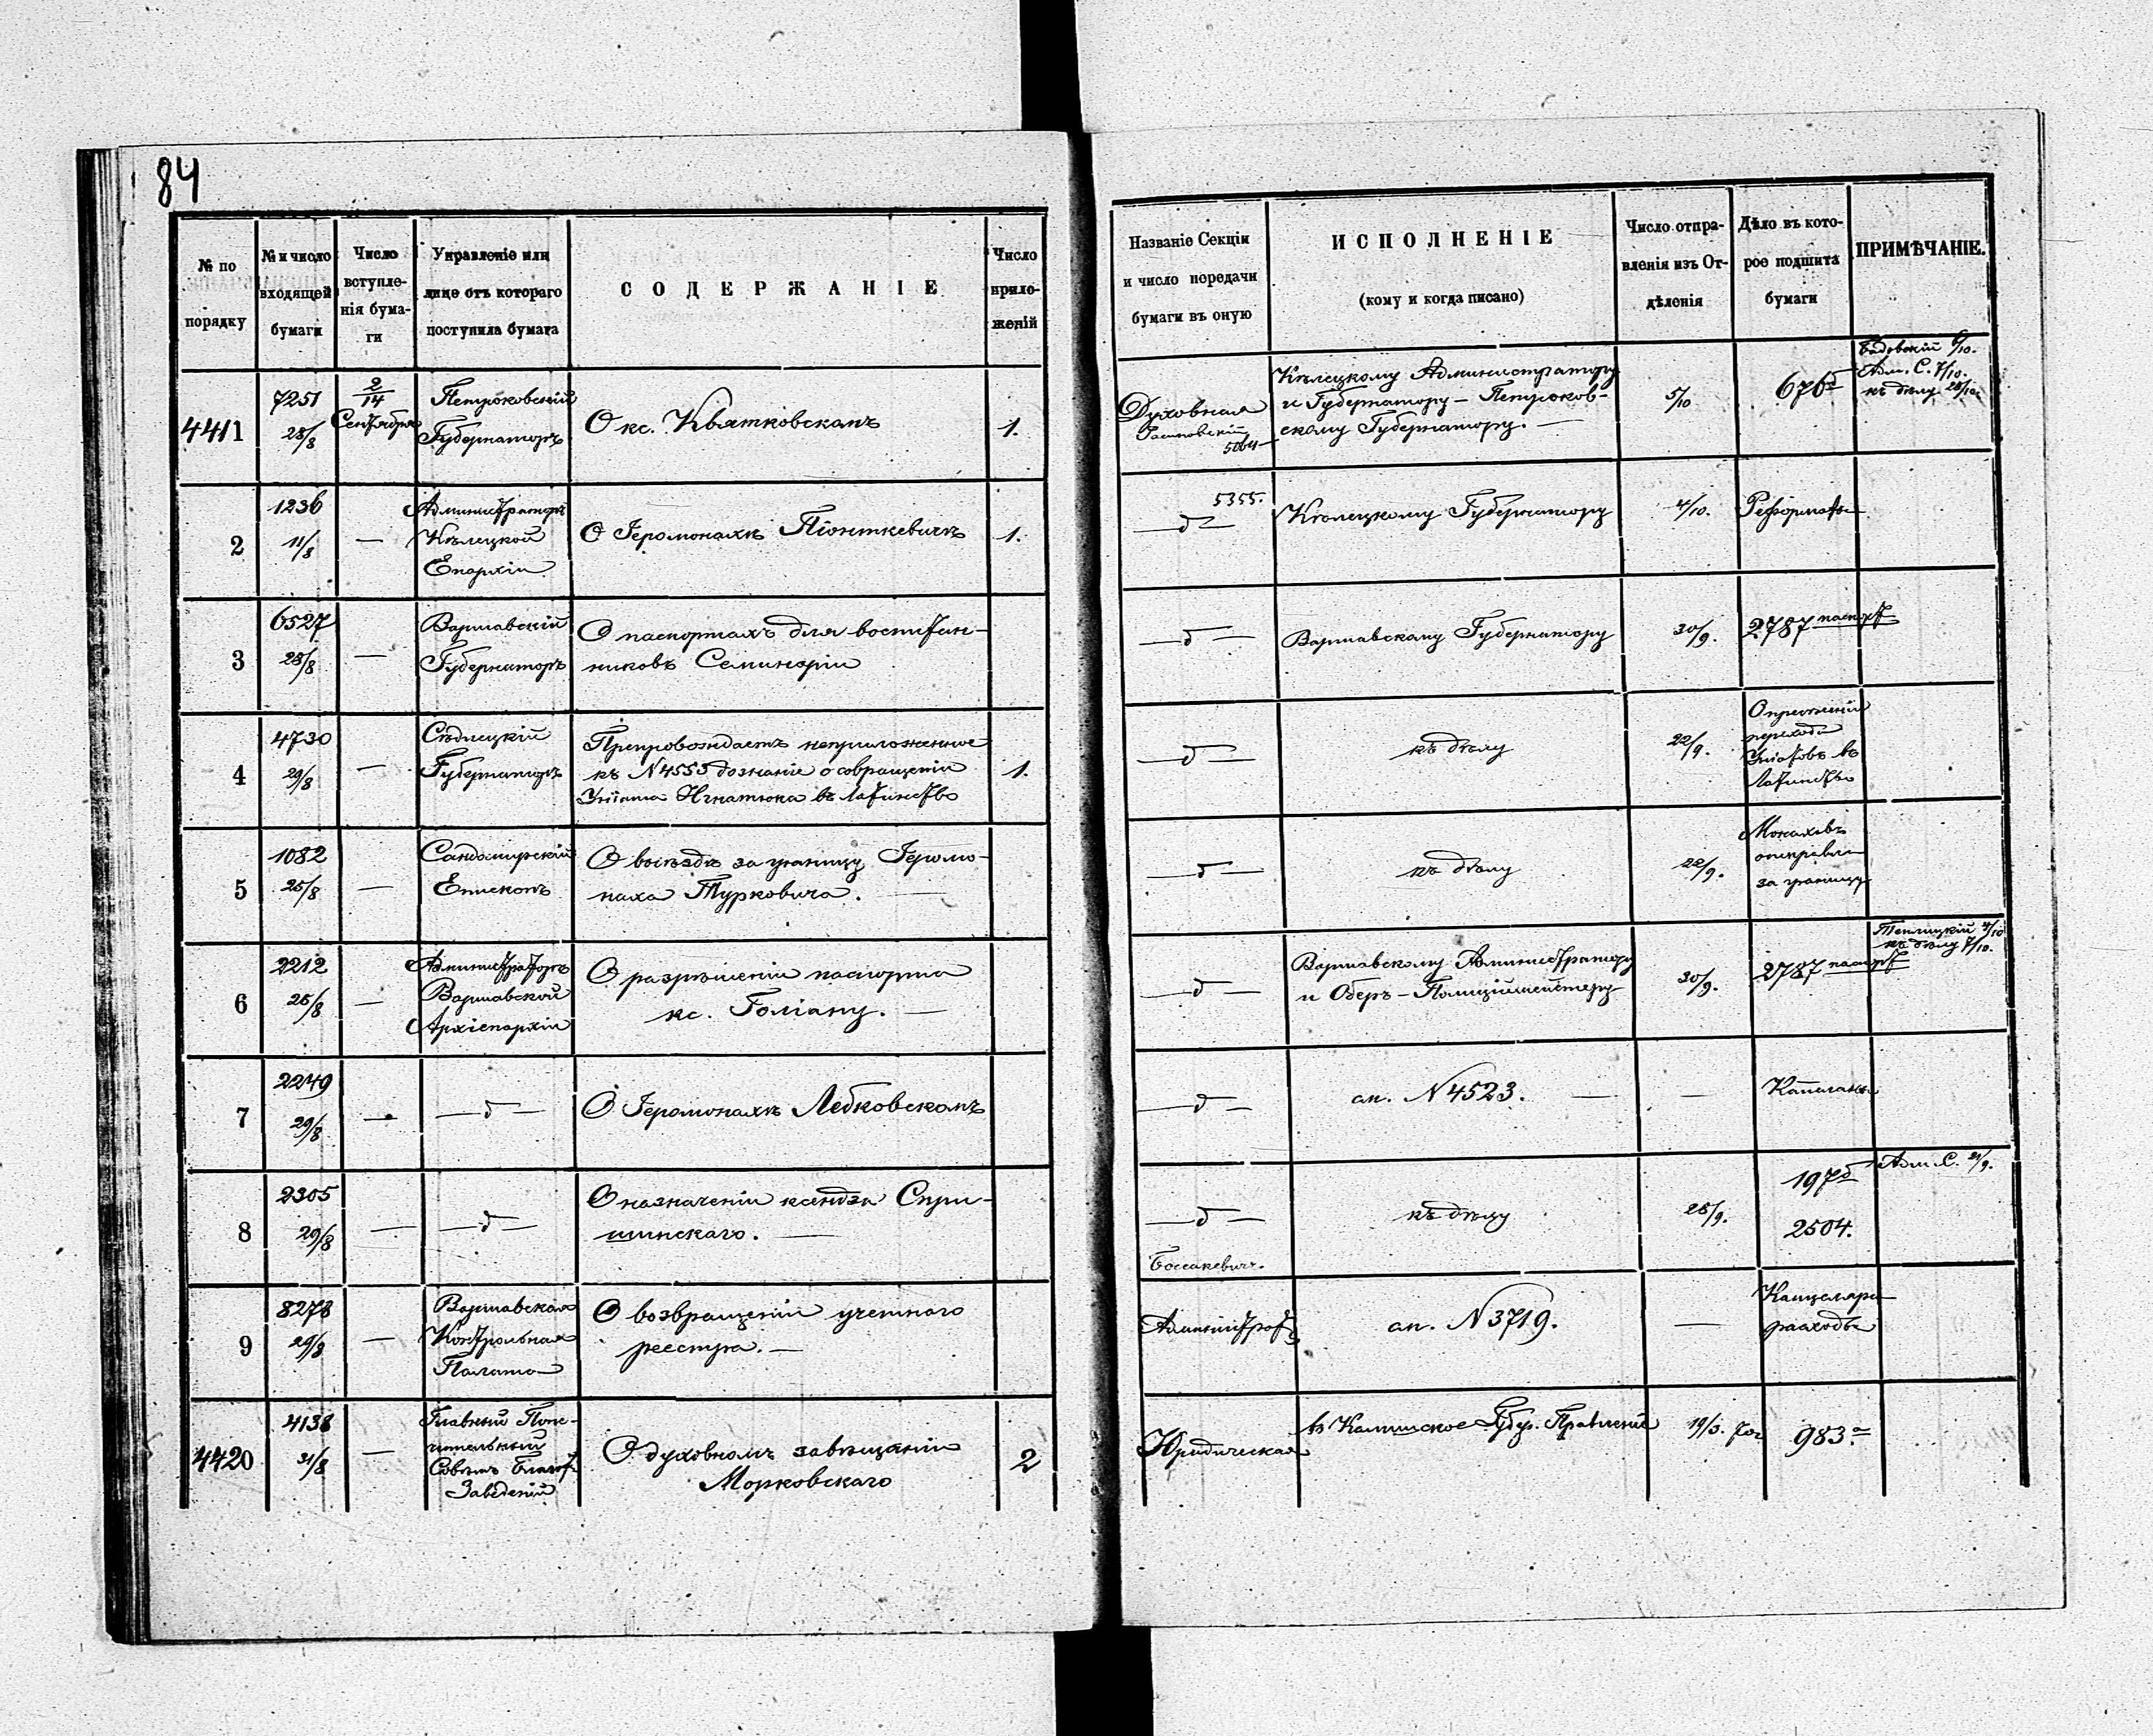 84
№ по
порядку
№ и число
входящей
бумаги
Число
вступле-
нія бума-
ги
Управленіе или
лице отъ котораго
поступила бумага
СОДЕРЖАНІЕ
Число
прило-
женій
Названіе Секціи
и число передачи
бумаги въ оную
ИСПОЛНЕНІЕ
(кому и когда писано)
Число отпра-
вленія изъ От-
дѣленія
Дѣло въ кото-
рое подшита
бумаги
ПРИМѢЧАНІЕ.
4411
7251
28/8
2/14
Сентября
Петроковскій
Губернаторъ
О кс. Квятковскомъ
1.
Духовная
5064
Кѣлецкому Администратору
и Губернатору — Петроков-
скому Губернатору. —
5/10
676
6/10.
Адм. С. 7/10.
къ дѣлу 28/10.
2
1236
11/8
—
Администраторъ
Кѣлецкой
Епархіи
О Іеромонахѣ Піонткевичѣ
1.
5355.
— д —
Кѣлецкому Губернатору
4/10.
Реформаты
3
6527
28/8
—
Варшавскій
Губернаторъ
О паспортахъ для воспитан-
никовъ Семинаріи
— д —
Варшавскому Губернатору
30/9.
2787 паспорт
4
4730
29/8
—
Сѣдлецкій
Губернаторъ
Препровождаетъ неприложенное
къ N 4555 дознаніе о совращеніи
Уніята Игнатюка въ латинство
1.
— д —
къ дѣлу
22/9.
О пресѣченіи
перехода
Уніатовъ въ
Латинство
5
1082
25/8
—
Сандомирскій
Епископъ
О выѣздѣ за границу Іеромо-
наха Турковича. —
— д —
къ дѣлу
22/9.
Монаховъ
отправл
за границу
6
2212
28/8
—
Администраторъ
Варшавской
Архіепархіи
О разрѣшеніи паспорта
кс. Голіану. —
— д —
Варшавскому Администратору
и Оберъ-Полиціймейстеру
30/9.
2787 паспорт
Теплицкій 4/10
къ дѣлу 7/10.
7
2249
29/8
—
— д —
О Іеромонахѣ Лебковскомъ
— д —
ал. N 4523. —
—
8
2305
29/8
—
— д —
О назначеніи ксендза Спри-
шинскаго. —
— д —
къ дѣлу
28/9.
197
2504.
Адм. С. 21/9.
9
8278
29/8
—
Варшавская
Контрольная
Палата
О возвращеніи учетнаго
реестра. —
ал. N 3719.
—
Канцеляр
расходы
4420
4138
31/8
—
Главный Попе-
чительный
Совѣтъ Благот.
Заведеній
О духовномъ завѣщаніи
Морковскаго
2
Юридическая
въ Калишское Губер. Правленіе
19/3.
983